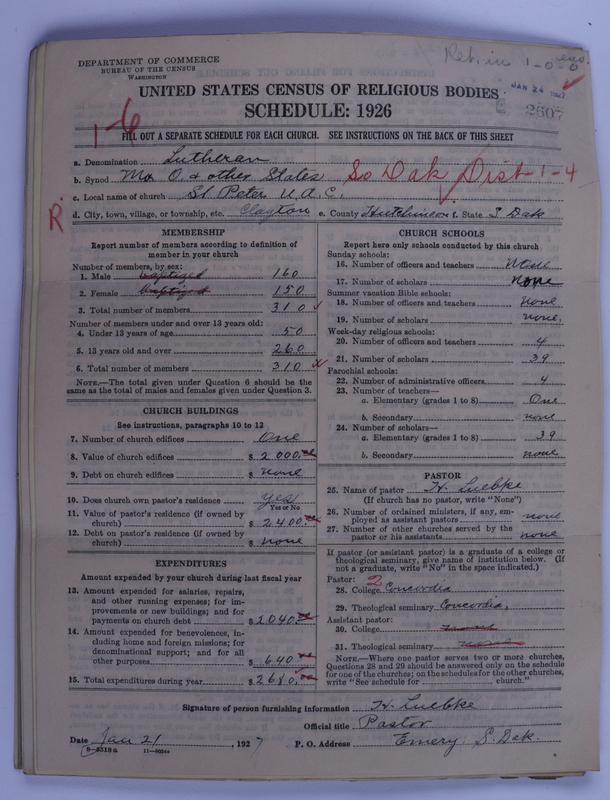 DEPARTMENT OF COMMERCE
BUREAU OF THE CENSUS
WASHINGTON
Ret. in 1-0-0
JAN 24 1927
2607
UNITED STATES CENSUS OF RELIGIOUS BODIES
SCHEDULE: 1926
1-6
FILL OUT A SEPARATE SCHEDULE FOR EACH CHURCH. SEE INSTRUCTIONS ON THE BACK OF THIS SHEET
a. Denomination Lutheran
b. Synod Mo. O. & other States So Dak Dist 1-4
c. Local name of church St. Peter U.A.C.
R
d. City, town, village, or township, etc. Clayton e. County Hutchinson f. State S. Dak
MEMBERSHIP
Report number of members according to definition of
member in your church
Number of members, by sex:
1. Male baptized 160
2. Female baptized 150
3. Total number of members 310
Number of members under and over 13 years old:
4. Under 13 years of age 50
5. 13 years old and over 260
6. Total number of members 310
NOTE.—The total given under Question 6 should be the
same as the total of males and females given under Question 3.
CHURCH BUILDINGS
See instructions, paragraphs 10 to 12
7. Number of church edifices One
8. Value of church edifices $ 2000.
9. Debt on church edifices $ none
10. Does church own pastor's residence yes
Yes or No
11. Value of pastor's residence (if owned by
church) $ 2400.
12. Debt on pastor's residence (if owned by
church) $ none
EXPENDITURES
Amount expended by your church during last fiscal year
13. Amount expended for salaries, repairs,
and other running expenses; for im-
provements or new buildings; and for
payments on church debt $ 2040.
14. Amount expended for benevolences, in-
cluding home and foreign missions; for
denominational support; and for all
other purposes $ 640
15. Total expenditures during year $ 2680.
CHURCH SCHOOLS
Report here only schools conducted by this church
Sunday schools:
16. Number of officers and teachers None
17. Number of scholars none
Summer vacation Bible schools:
18. Number of officers and teachers none
19. Number of scholars none.
Week-day religious schools:
20. Number of officers and teachers 4
21. Number of scholars 39
Parochial schools:
22. Number of administrative officers 4
23. Number of teachers—
a. Elementary (grades 1 to 8) One
b. Secondary none
24. Number of scholars—
a. Elementary (grades 1 to 8) 39
b. Secondary none
PASTOR
25. Name of pastor H. Luebke
(If church has no pastor, write "None")
26. Number of ordained ministers, if any, em-
ployed as assistant pastors none
27. Number of other churches served by the
pastor or his assistants none
If pastor (or assistant pastor) is a graduate of a college or
theological seminary, give name of institution below. (If
not a graduate, write "No" in the space indicated.)
Pastor: 2
28. College Concordia
29. Theological seminary Concordia.
Assistant pastor:
30. College
31. Theological seminary
NOTE.—Where one pastor serves two or more churches,
Questions 28 and 29 should be answered only on the schedule
for one of the churches; on the schedules for the other churches,
write "See schedule for church."
Signature of person furnishing information H. Luebke
Official title Pastor
Date Jan 21, 1927 P. O. Address Emery, S. Dak.
8-5318a 11-8034